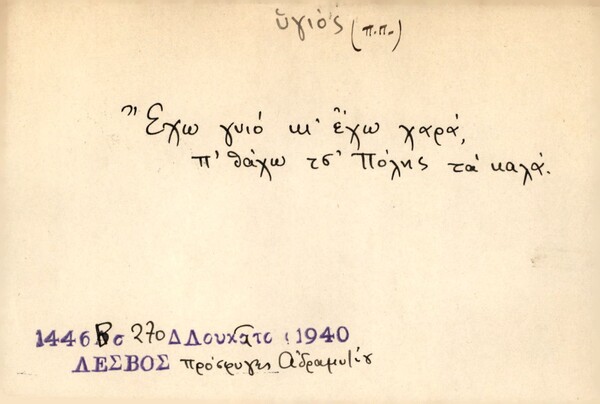 ὑγιός (π.π.)
Ἔχω γυιό κι' ἔχω χαρά,
π' θάχω τσ' Πόλης τά καλά.
1446 Β σ 270 Δ Λουκᾶτο 1940
ΛΕΣΒΟΣ πρόσφυγες Ἀδραμυτίου